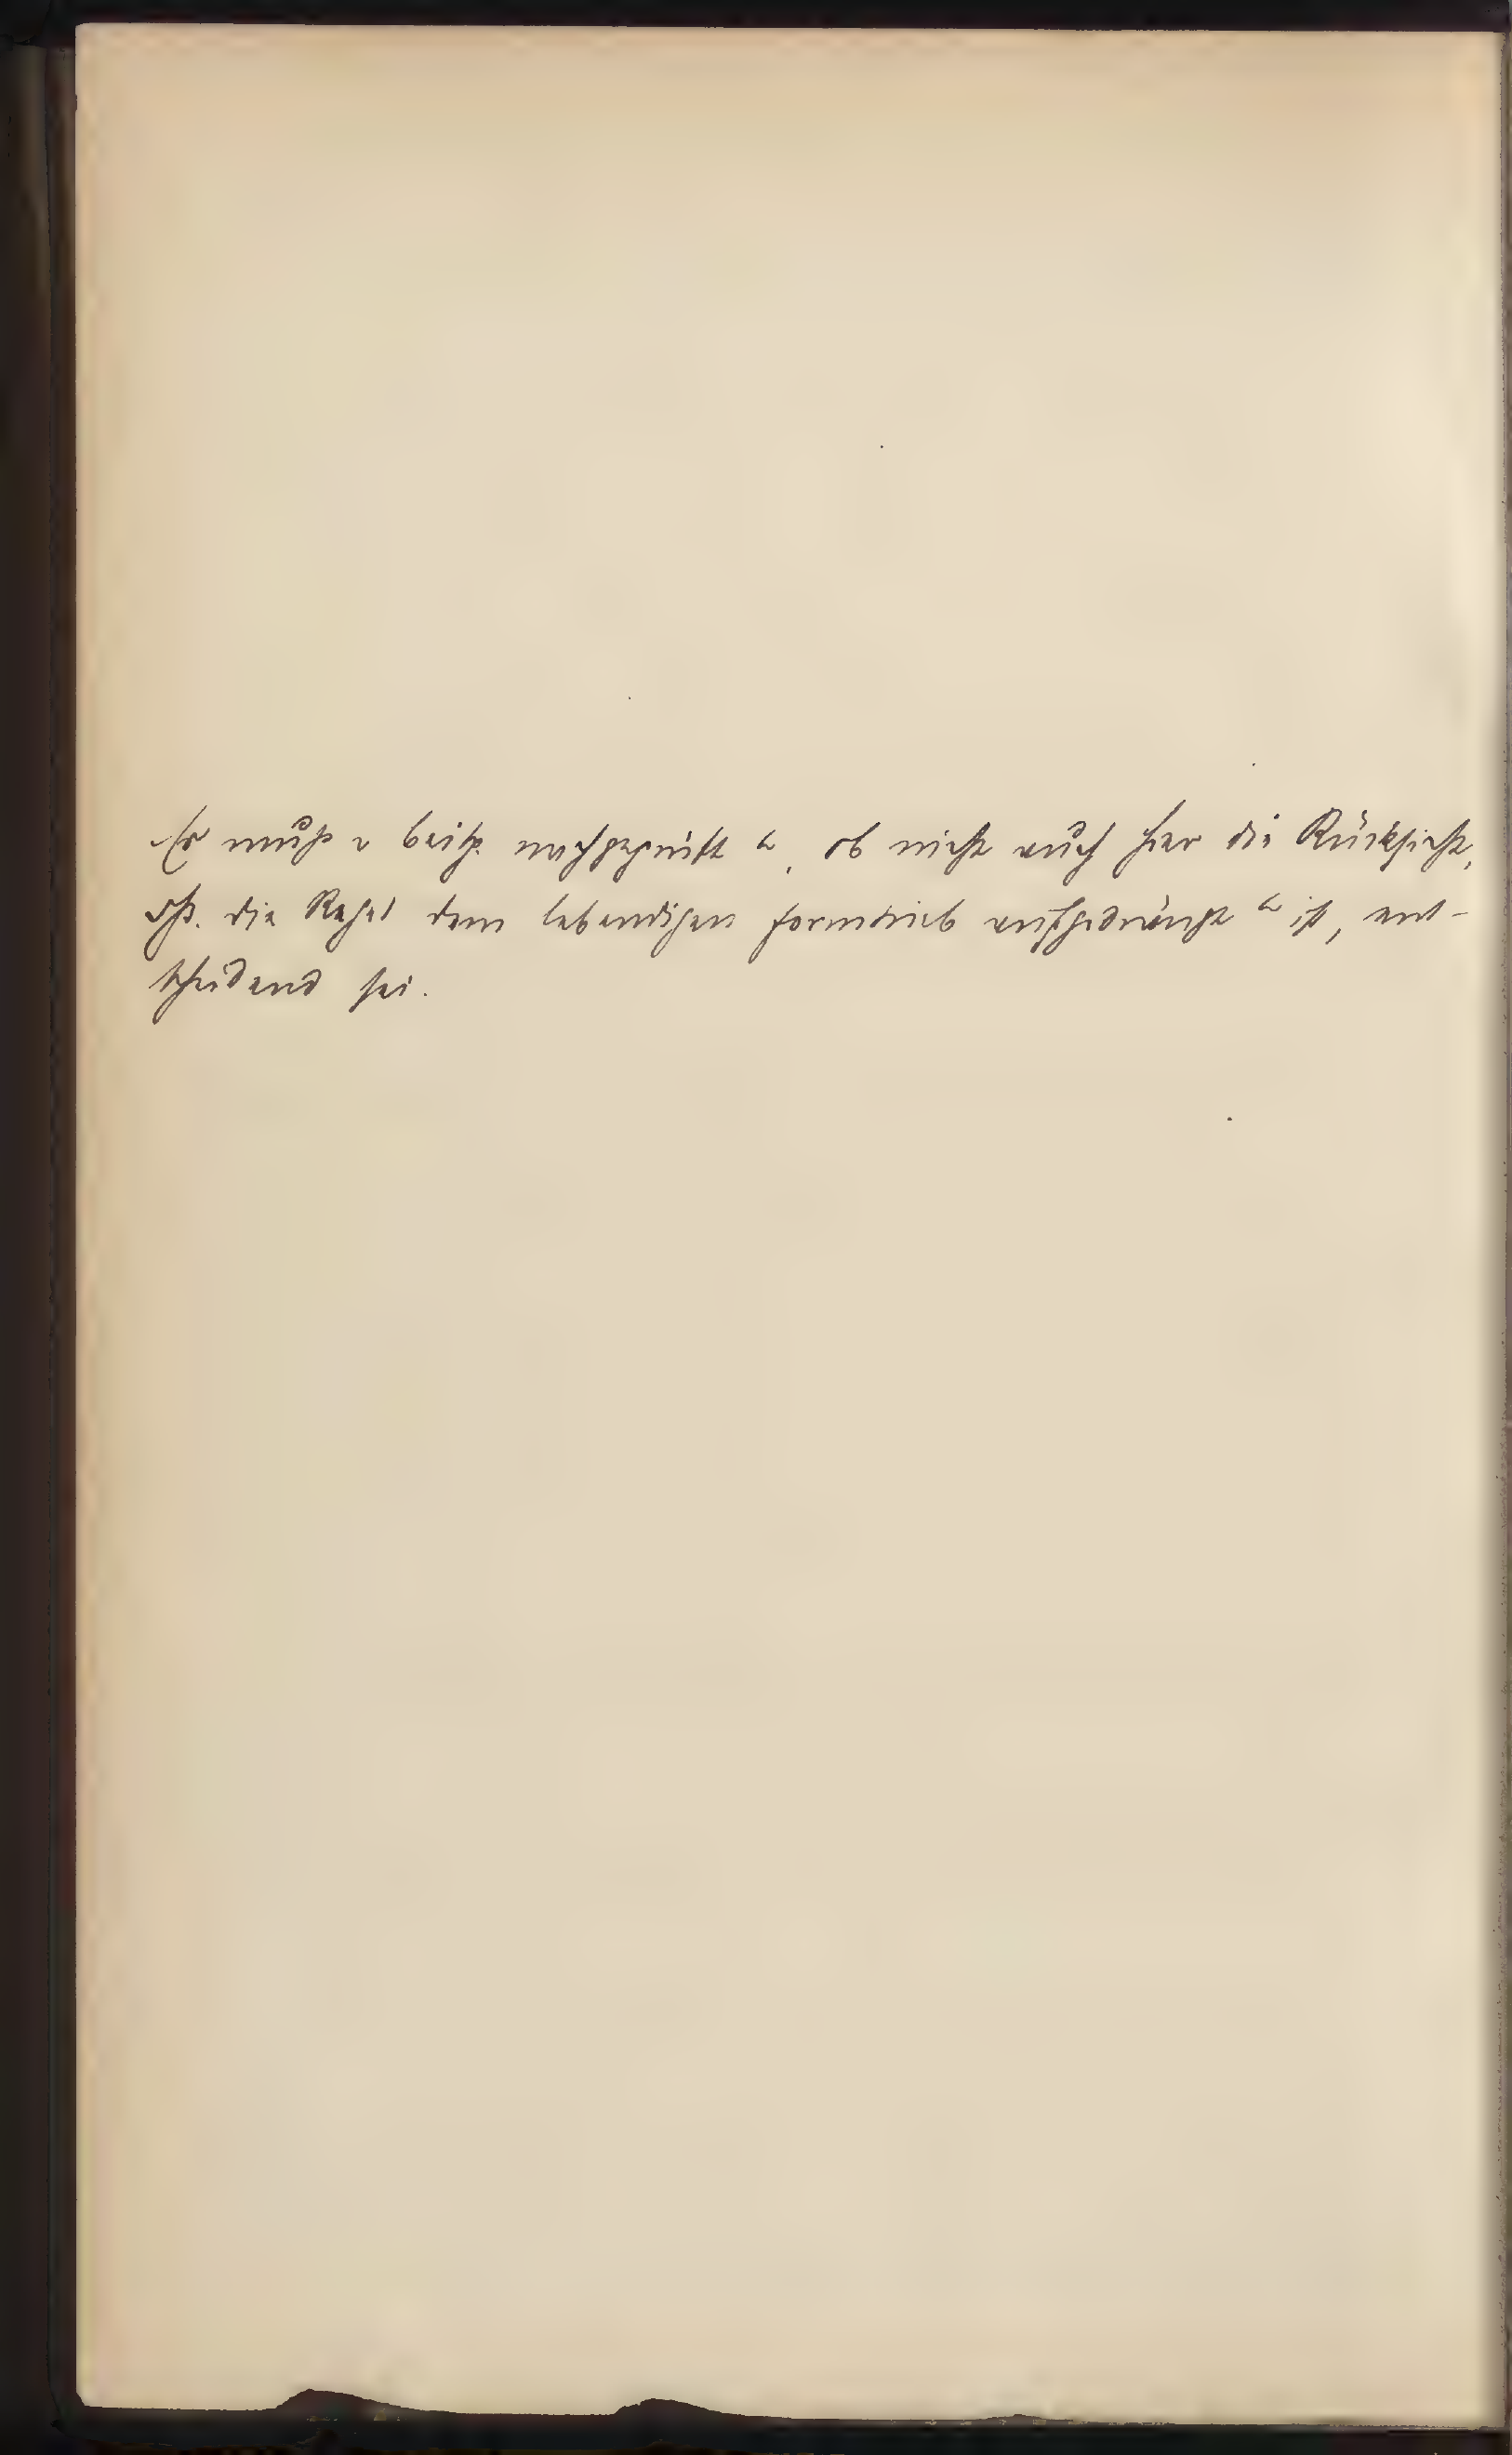 Es muß beisp. nachgeprüft, ob nicht auch hier die Rücksicht,
die Regel dem lebendigen Formtrieb aufgedrängt ist, ent-
scheidend sei.